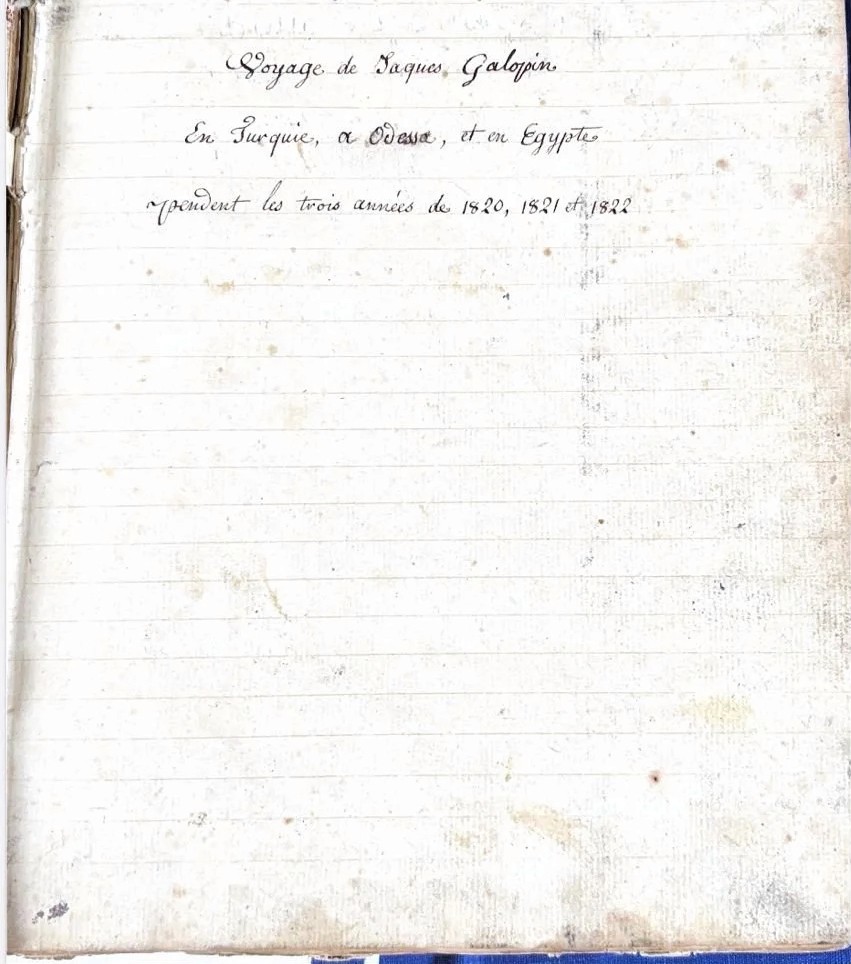 Voyage de Jaques Galopin
En Turquie, a Odessa, et en Egypte
pendent les trois années de 1820, 1821 et 1822